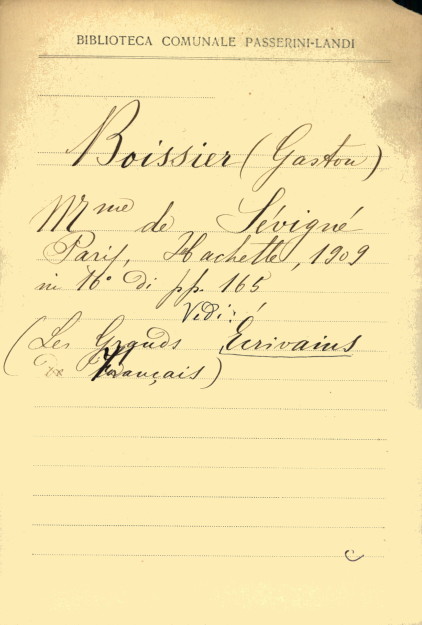 BIBLIOTECA COMUNALE PASSERINI-LANDI
Boissier (Gaston)
Mme de Sévigné
Paris, Hachette, 1909
in 16° di pp. 165
Vedi:
(Les Grands Écrivains
Français)
C